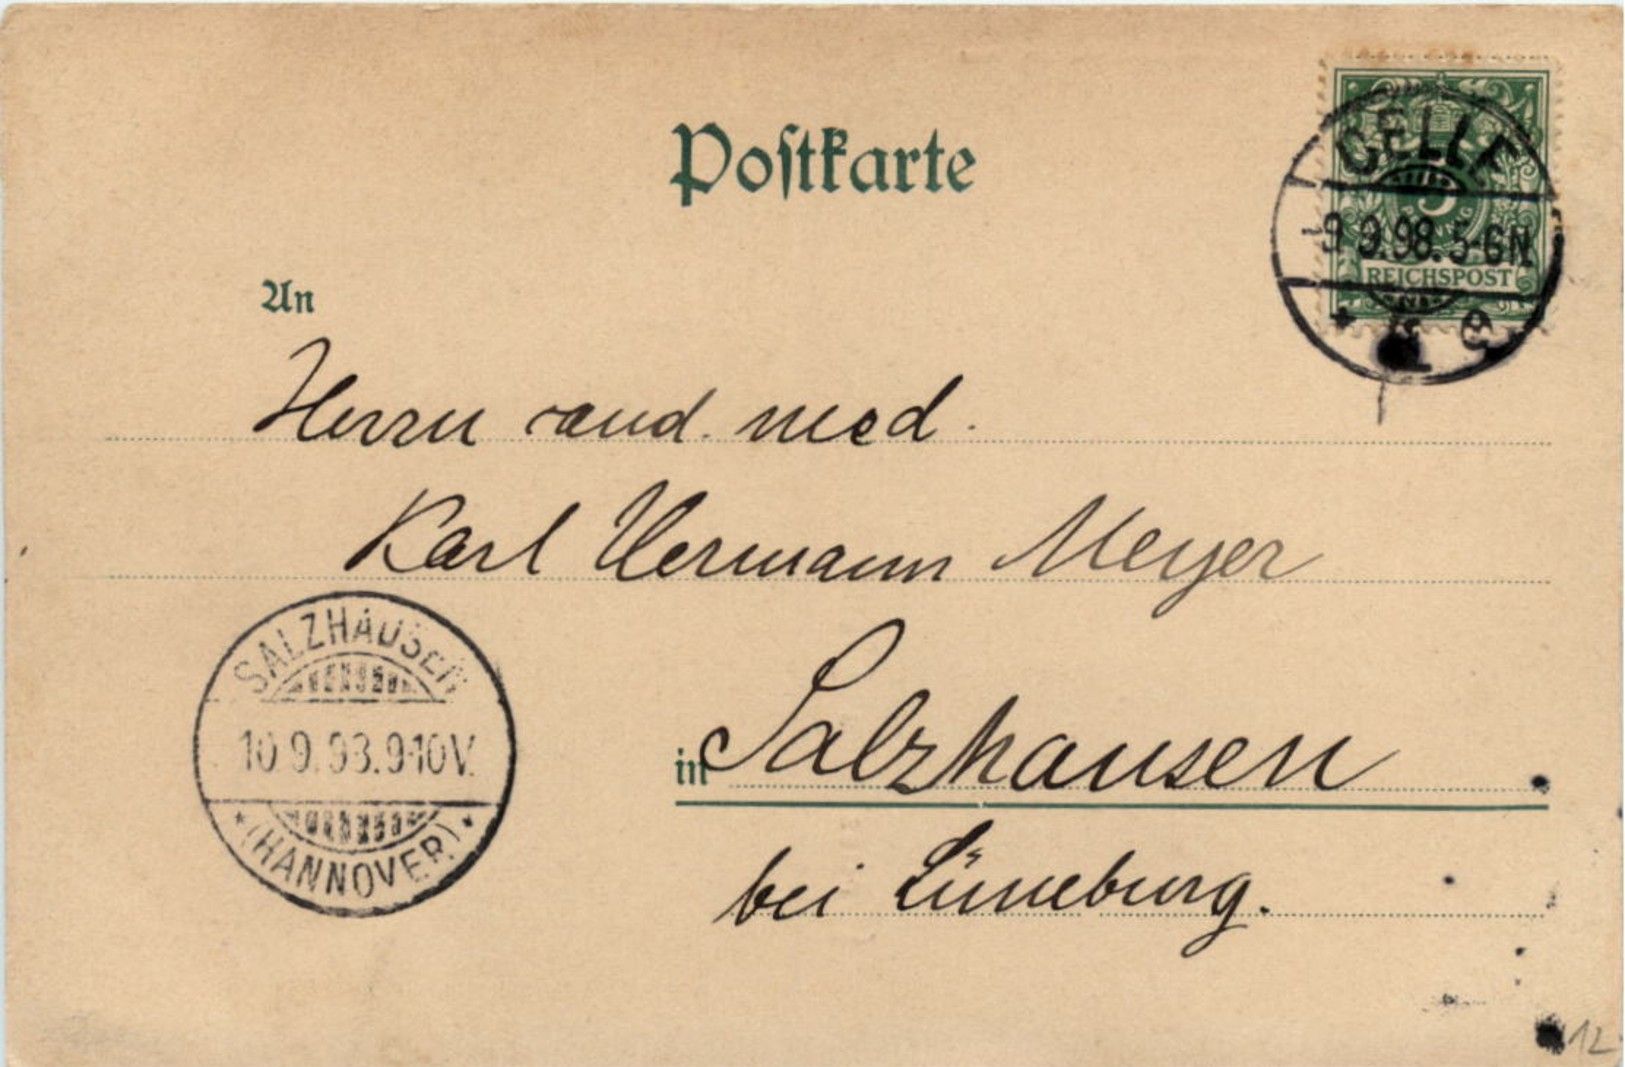 Postkarte
CELLE
9.9.98.5-6N.
5
REICHSPOST
An
Herrn cand. med.
Karl Hermann Meyer
SALZHAUSEN
10.9.98.9-10V.
(HANNOVER)
in Salzhausen
bei Lüneburg.
12